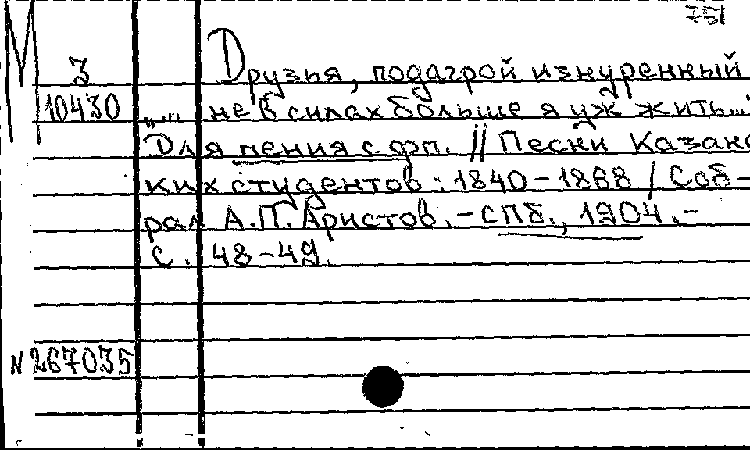 751
М
З
10430
Друзья, подагрой изнуренный
„... не в силах больше я уж жить..."
Для пения с фп. // Песни Казанс
ких студентов: 1840-1868 / Соб-
рал А.П. Аристов. - СПб., 1904. -
С. 48-49.
N 267035